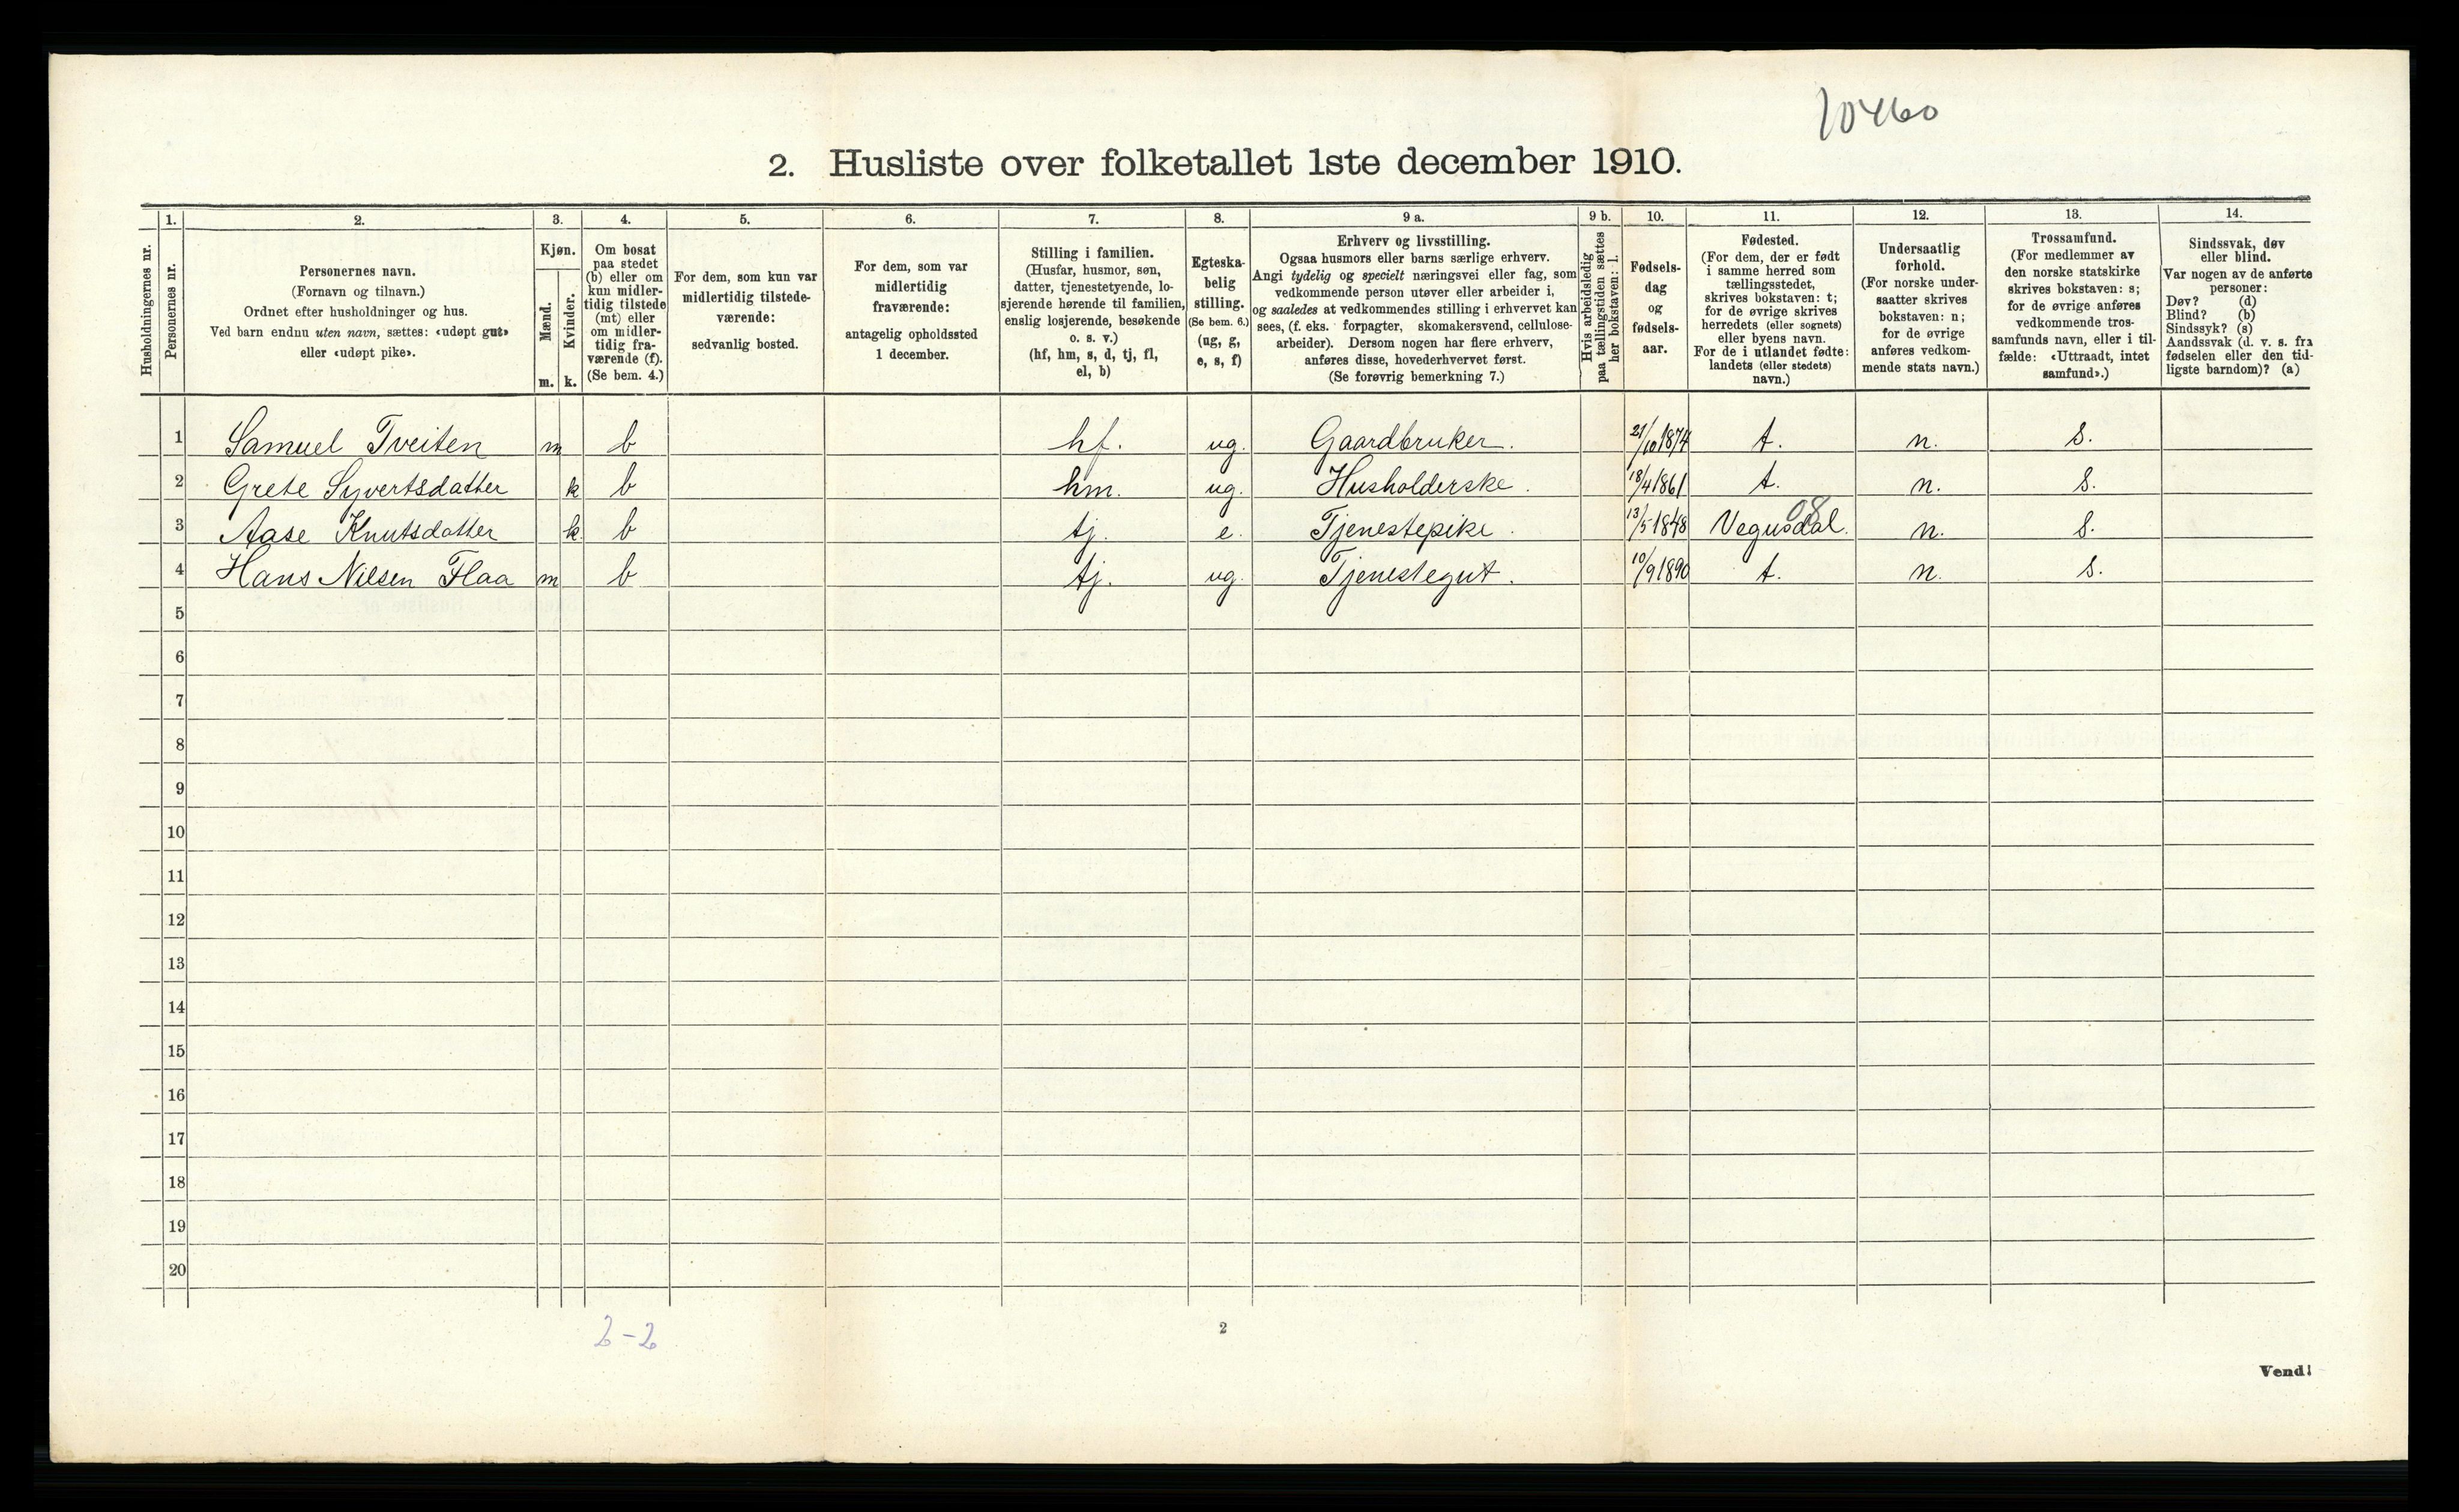 10460
2. Husliste over folketallet 1ste december 1910.
1. 2. 3. 4. 5. 6. 7. 8. 9 a. 9 b. 10. 11. 12. 13. 14.
Husholdningernes nr.
Personernes nr.
Personernes navn.
(Fornavn og tilnavn.)
Ordnet efter husholdninger og hus.
Ved barn endnu uten navn, sættes: «udøpt gut»
eller «udøpt pike».
Kjøn.
Mænd.
Kvinder.
m. k.
Om bosat
paa stedet
(b) eller om
kun midler-
tidig tilstede
(mt) eller
om midler-
tidig fra-
værende (f).
(Se bem. 4.)
For dem, som kun var
midlertidig tilstede-
værende:
sedvanlig bosted.
For dem, som var
midlertidig
fraværende:
antagelig opholdssted
1 december.
Stilling i familien.
(Husfar, husmor, søn,
datter, tjenestetyende, lo-
sjerende hørende til familien,
enslig losjerende, besøkende
o. s. v.)
(hf, hm, s, d, tj, fl,
el, b)
Egteska-
belig
stilling.
(Se bem. 6.)
(ug, g,
e, s, f)
Erhverv og livsstilling.
Ogsaa husmors eller barns særlige erhverv.
Angi tydelig og specielt næringsvei eller fag, som
vedkommende person utøver eller arbeider i,
og saaledes at vedkommendes stilling i erhvervet kan
sees, (f. eks. forpagter, skomakersvend, cellulose-
arbeider). Dersom nogen har flere erhverv,
anføres disse, hovederhvervet først.
(Se forøvrig bemerkning 7.)
Hvis arbeidsledig
paa tællingstiden sættes
her bokstaven: l.
Fødsels-
dag
og
fødsels-
aar.
Fødested.
(For dem, der er født
i samme herred som
tællingsstedet,
skrives bokstaven: t;
for de øvrige skrives
herredets (eller sognets)
eller byens navn.
For de i utlandet fødte:
landets (eller stedets)
navn.)
Undersaatlig
forhold.
(For norske under-
saatter skrives
bokstaven: n;
for de øvrige
anføres vedkom-
mende stats navn.)
Trossamfund.
(For medlemmer av
den norske statskirke
skrives bokstaven: s;
for de øvrige anføres
vedkommende tros-
samfunds navn, eller i til-
fælde: «Uttraadt, intet
samfund».)
Sindssvak, døv
eller blind.
Var nogen av de anførte
personer:
Døv? (d)
Blind? (b)
Sindssyk? (s)
Aandssvak (d. v. s. fra
fødselen eller den tid-
ligste barndom)? (a)
1 Samuel Tveiten m b hf. ug. Gaardbruker. 21/10 1874 t. n. s.
2 Grete Syvertsdatter k b hm. ug. Husholderske. 18/4 1861 t. n. s.
08
3 Aase Knutsdatter k b tj. e. Tjenestepike. 13/5 1848 Vegusdal. n. s.
4 Hans Nilsen Flaa m b tj. ug. Tjenestegut. 10/9 1890 t. n. s.
5
6
7
8
9
10
11
12
13
14
15
16
17
18
19
20
2-2
2
Vend!